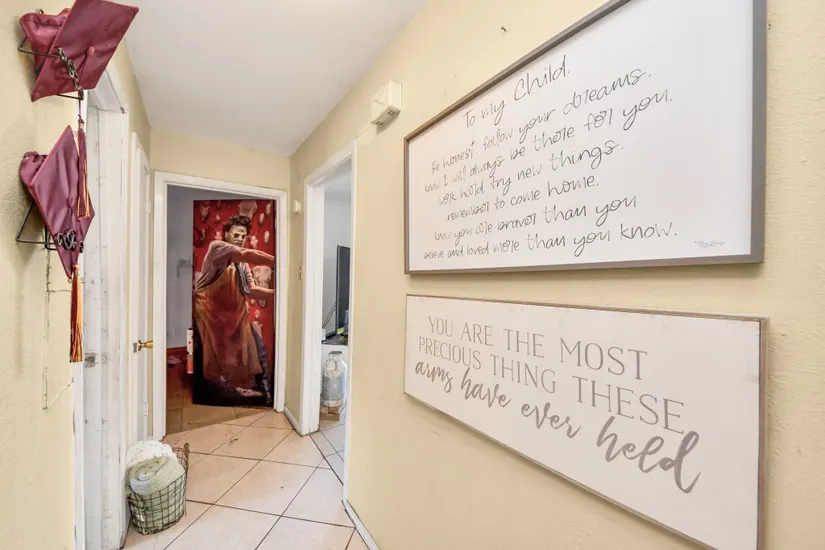 To my Child.
Be honest. follow your dreams.
know I will always be there for you.
work hard. try new things.
remember to come home.
know you are braver than you
believe and loved more than you know.
YOU ARE THE MOST
PRECIOUS THING THESE
arms have ever held